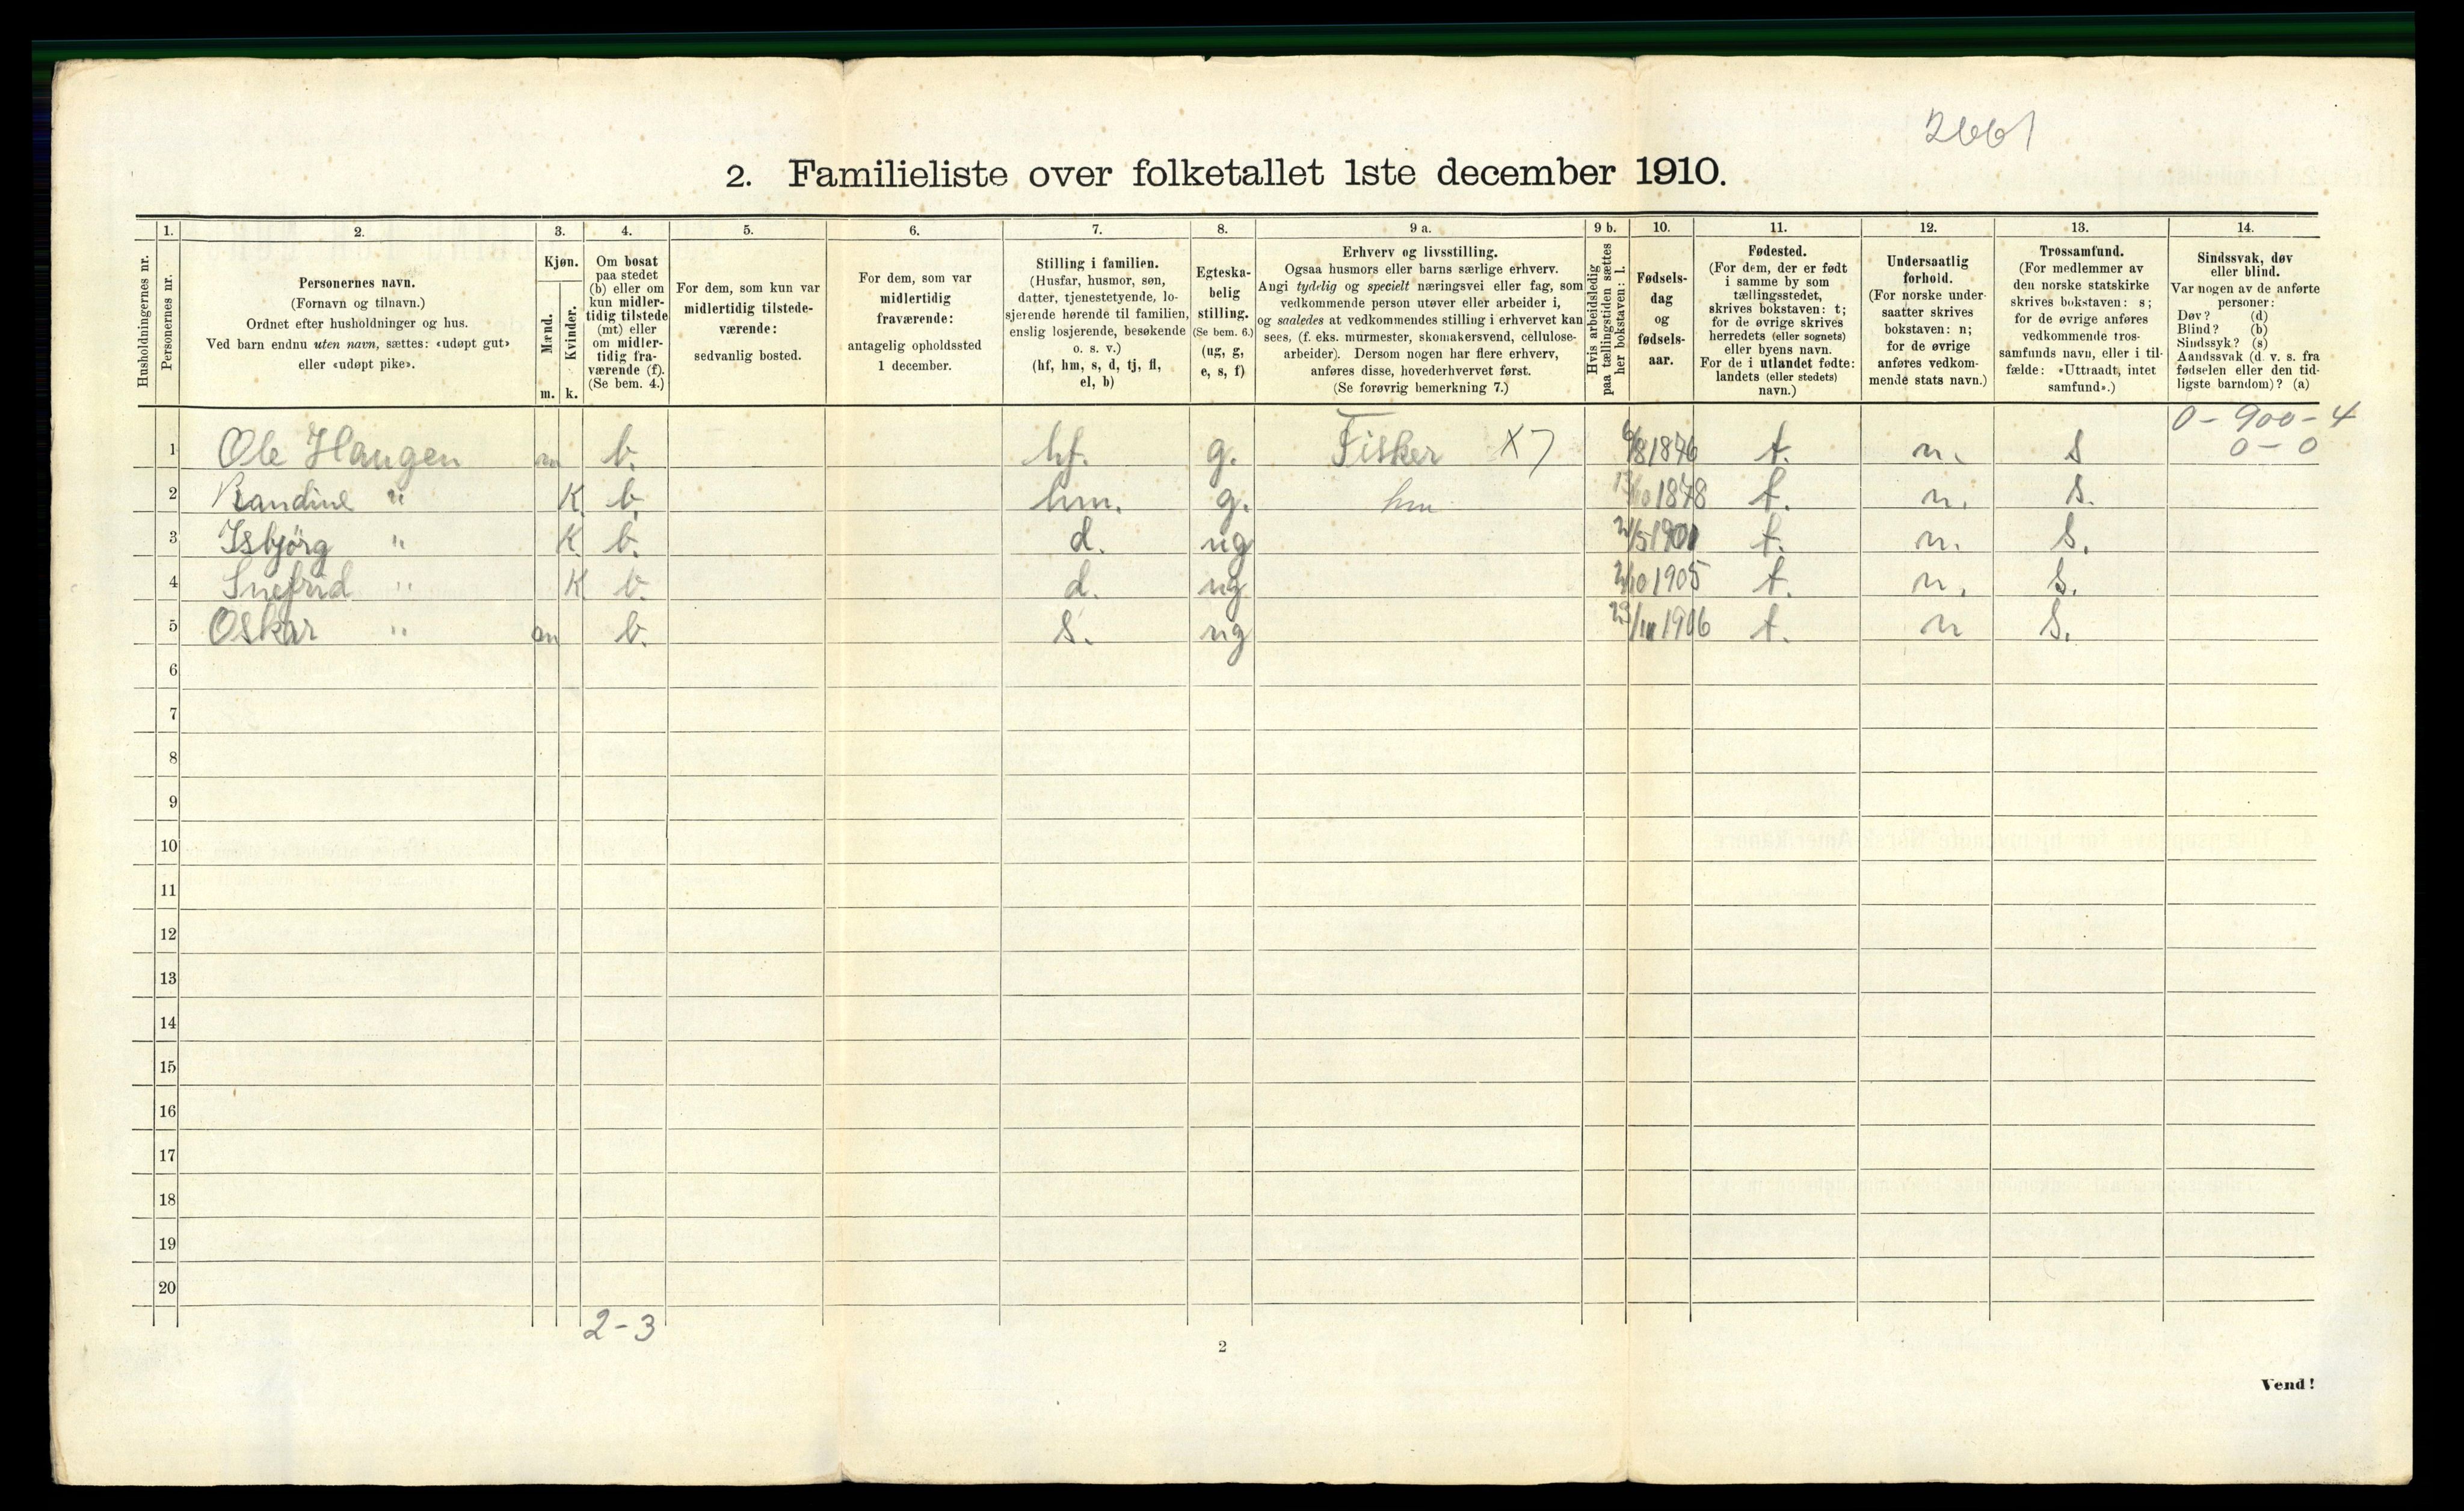 2661
2. Familieliste over folketallet 1ste december 1910.
Husholdningernes nr.
1.
Personernes nr.
2.
Personernes navn.
(Fornavn og tilnavn.)
Ordnet efter husholdninger og hus.
Ved barn endnu uten navn, sættes: «udøpt gut»
eller «udøpt pike».
3.
Kjøn.
Mænd.
Kvinder.
m. k.
4.
Om bosat
paa stedet
(b) eller om
kun midler-
tidig tilstede
(mt) eller
om midler-
tidig fra-
værende (f).
(Se bem. 4.)
5.
For dem, som kun var
midlertidig tilstede-
værende:
sedvanlig bosted.
6.
For dem, som var
midlertidig
fraværende:
antagelig opholdssted
1 december.
7.
Stilling i familien.
(Husfar, husmor, søn,
datter, tjenestetyende, lo-
sjerende hørende til familien,
enslig losjerende, besøkende
o. s. v.)
(hf, hm, s, d, tj, fl,
el, b)
8.
Egteska-
belig
stilling.
(Se bem. 6.)
(ug, g,
e, s, f)
9 a.
Erhverv og livsstilling.
Ogsaa husmors eller barns særlige erhverv.
Angi tydelig og specielt næringsvei eller fag, som
vedkommende person utøver eller arbeider i,
og saaledes at vedkommendes stilling i erhvervet kan
sees, (f. eks. murmester, skomakersvend, cellulose-
arbeider). Dersom nogen har flere erhverv,
anføres disse, hovederhvervet først.
(Se forøvrig bemerkning 7.)
9 b.
Hvis arbeidsledig
paa tællingstiden sættes
her bokstaven: l.
10.
Fødsels-
dag
og
fødsels-
aar.
11.
Fødested.
(For dem, der er født
i samme by som
tællingsstedet,
skrives bokstaven: t;
for de øvrige skrives
herredets (eller sognets)
eller byens navn.
For de i utlandet fødte:
landets (eller stedets)
navn.)
12.
Undersaatlig
forhold.
(For norske under-
saatter skrives
bokstaven: n;
for de øvrige
anføres vedkom-
mende stats navn.)
13.
Trossamfund.
(For medlemmer av
den norske statskirke
skrives bokstaven: s;
for de øvrige anføres
vedkommende tros-
samfunds navn, eller i til-
fælde: «Uttraadt, intet
samfund».)
14.
Sindssvak, døv
eller blind.
Var nogen av de anførte
personer:
Døv? (d)
Blind? (b)
Sindssyk? (s)
Aandssvak (d. v. s. fra
fødselen eller den tid-
ligste barndom)? (a)
0 - 900 - 4
0 - 0
1 Ole Haugen m b. hf. g. Fisker X7 6/8 1876 t. n. s
2 Randine " K b. hm. g. hm /10 1878 t. n. s.
3 Isbjörg " K b. d. ug /5 1901 t. n. s.
4 Snefrid " K b. d. ug /10 1905 t. n. s.
5 Oskar " m b. s. ug 1906 t. n s.
6
7
8
9
10
11
12
13
14
15
16
17
18
19
20
2-3
2
Vend!